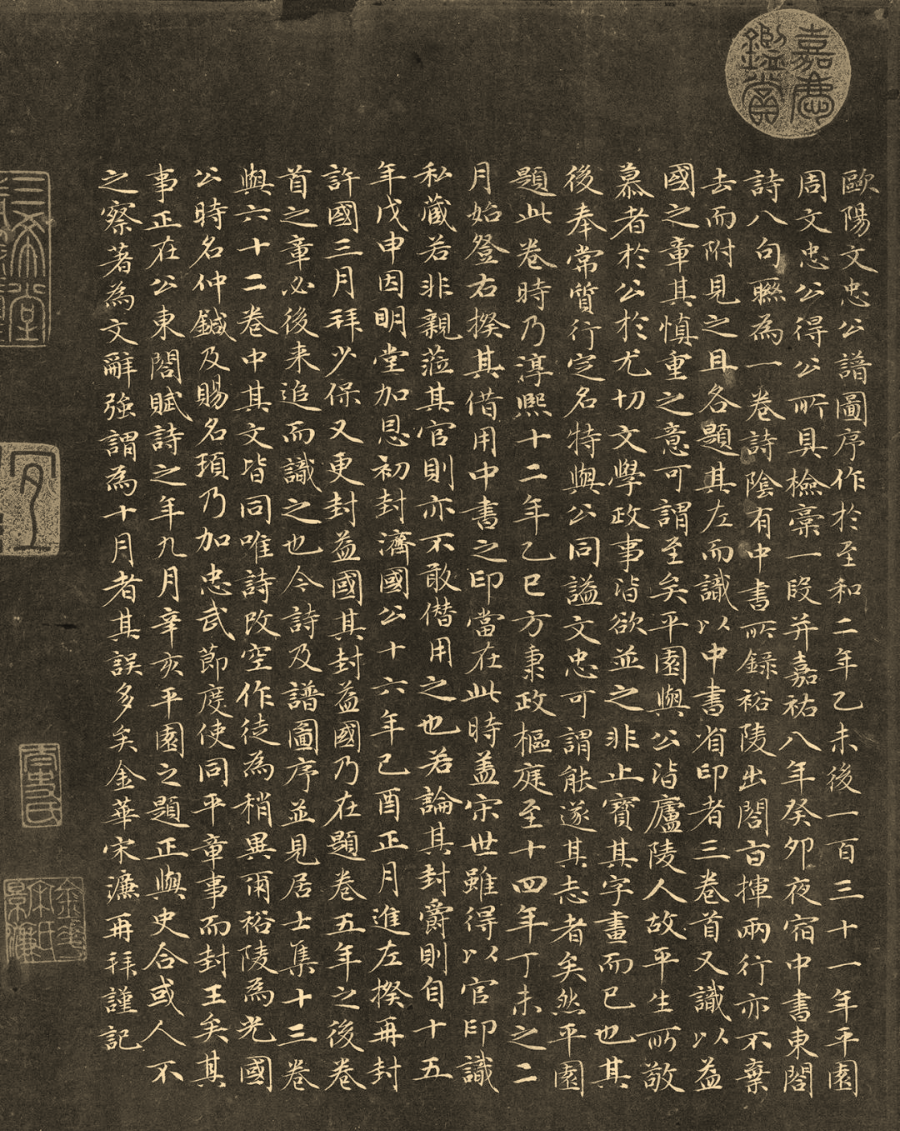 嘉慶鑑賞
歐陽文忠公譜圖序作於至和二年乙未後一百三十一年平園
周文忠公得公所具檢稾一段并嘉祐八年癸卯夜宿中書東閣
詩八句聯為一卷詩陰有中書所錄裕陵出閣旨揮兩行亦不棄
去而附見之且各題其左而識以中書省印者三卷首又識以益
國之章其慎重之意可謂至矣平園與公皆廬陵人故平生所敬
慕者於公於尤切文學政事皆欲並之非止寶其字畫而已也其
後奉常質行定名特與公同謚文忠可謂能遂其志者矣然平園
題此卷時乃淳熙十二年乙巳方秉政樞庭至十四年丁未之二
月始登右揆其借用中書之印當在此時蓋宋世雖得以官印識
私藏若非親蒞其官則亦不敢僭用之也若論其封爵則自十五
年戊申因明堂加恩初封濟國公十六年己酉正月進左揆再封
許國三月拜少保又更封益國其封益國乃在題卷五年之後卷
首之章必後来追而識之也今詩及譜圖序並見居士集十三卷
與六十二卷中其文皆同唯詩改空作徒為稍異爾裕陵為光國
公時名仲鍼及賜名頊乃加忠武節度使同平章事而封王矣其
事正在公東閣賦詩之年九月辛亥平園之題正與史合或人不
之察著為文辭強謂為十月者其誤多矣金華宋濂再拜謹記